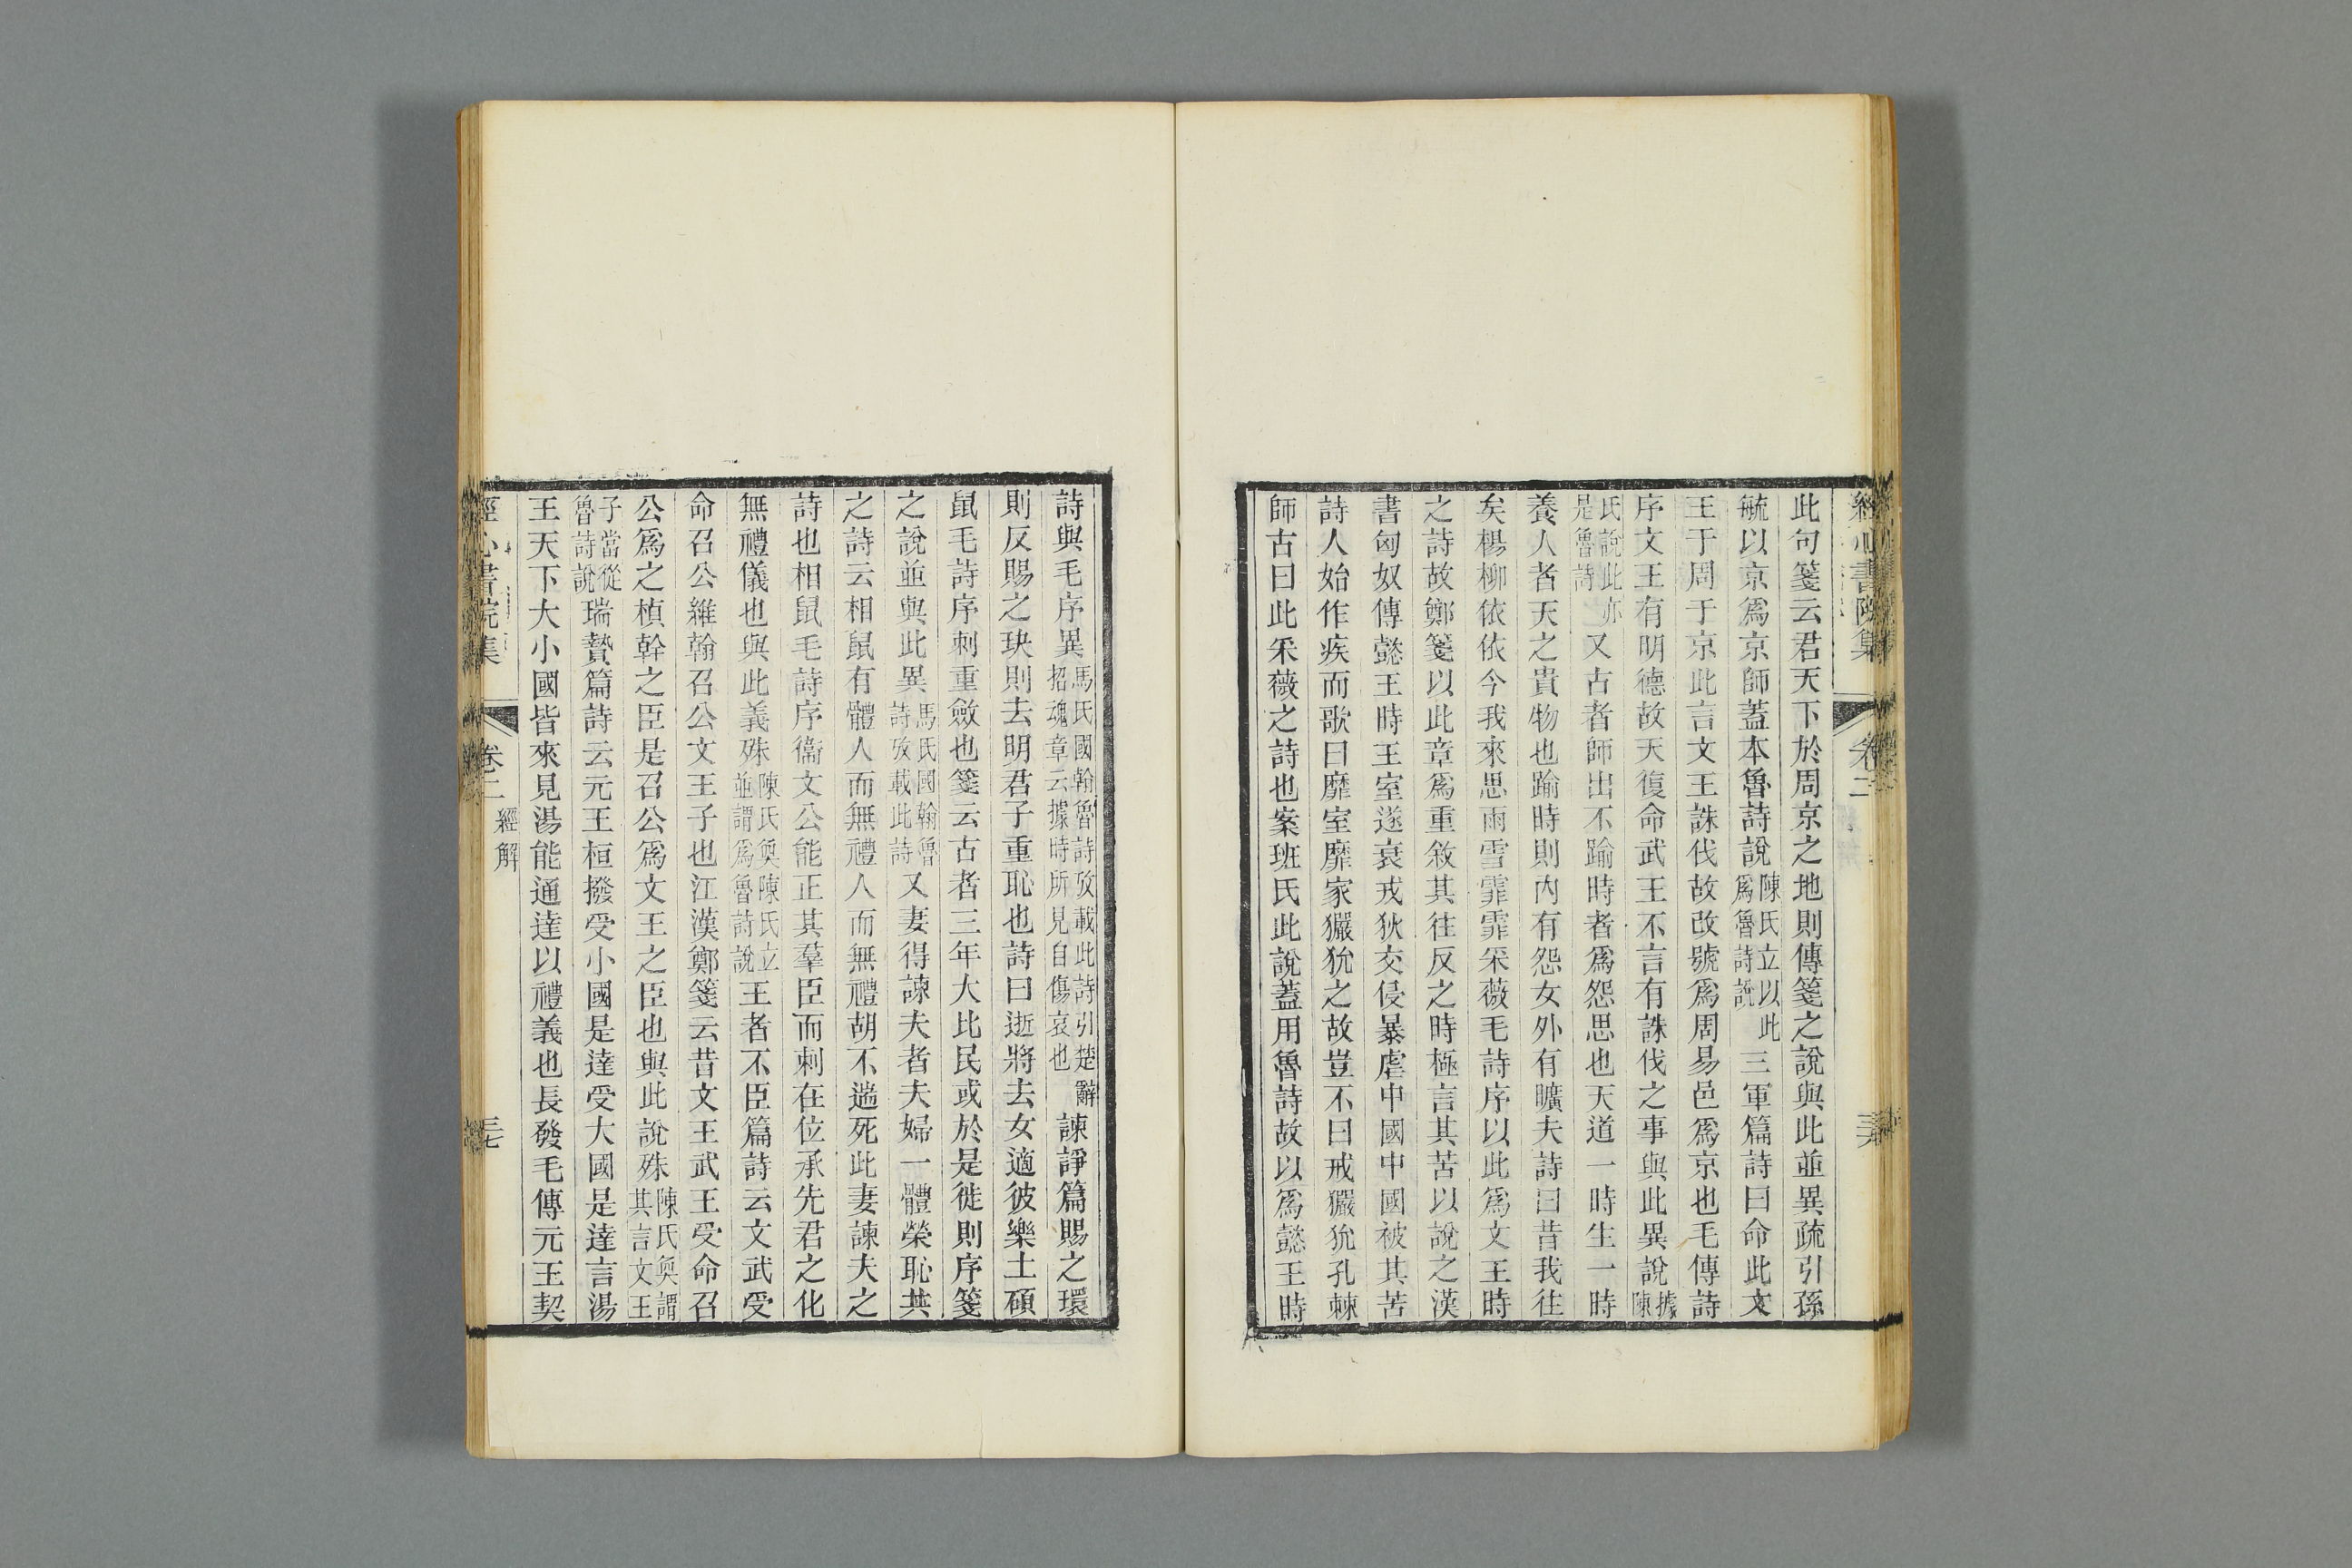 經心書院集 卷二
此句箋云君天下於周京之地則傳箋之說與此並異疏引孫
毓以京爲京師蓋本魯詩說陳氏立以此爲魯詩說三軍篇詩曰命此文
王于周于京此言文王誅伐故改號爲周易邑爲京也毛傳詩
序文王有明德故天復命武王不言有誅伐之事與此異說據陳
氏說此亦是魯詩又古者師出不踰時者爲怨思也天道一時生一時
養人者天之貴物也踰時則內有怨女外有曠夫詩曰昔我往
矣楊柳依依今我來思雨雪霏霏采薇毛詩序以此爲文王時
之詩故鄭箋以此章爲重敘其往反之時極言其苦以說之漢
書匈奴傳懿王時王室遂衰戎狄交侵暴虐中國中國被其苦
詩人始作疾而歌曰靡室靡家玁狁之故豈不曰戒玁狁孔棘
師古曰此采薇之詩也案班氏此說蓋用魯詩故以爲懿王時
詩與毛序異馬氏國翰魯詩攷載此詩引楚辭招魂章云據時所見自傷哀也諫諍篇賜之環
則反賜之玦則去明君子重恥也詩曰逝將去女適彼樂土碩
鼠毛詩序刺重斂也箋云古者三年大比民或於是徙則序箋
之說並與此異馬氏國翰魯詩攷載此詩又妻得諫夫者夫婦一體榮恥共
之詩云相鼠有體人而無禮人而無禮胡不遄死此妻諫夫之
詩也相鼠毛詩序衞文公能正其羣臣而刺在位承先君之化
無禮儀也與此義殊陳氏奐陳氏立並謂爲魯詩說王者不臣篇詩云文武受
命召公維翰召公文王子也江漢鄭箋云昔文王武王受命召
公爲之楨幹之臣是召公爲文王之臣也與此說殊陳氏奐謂其言文王
子當從魯詩說瑞贄篇詩云元王桓撥受小國是達受大國是達言湯
王天下大小國皆來見湯能通達以禮義也長發毛傳元王契
經心書院集 卷二 經解 三七